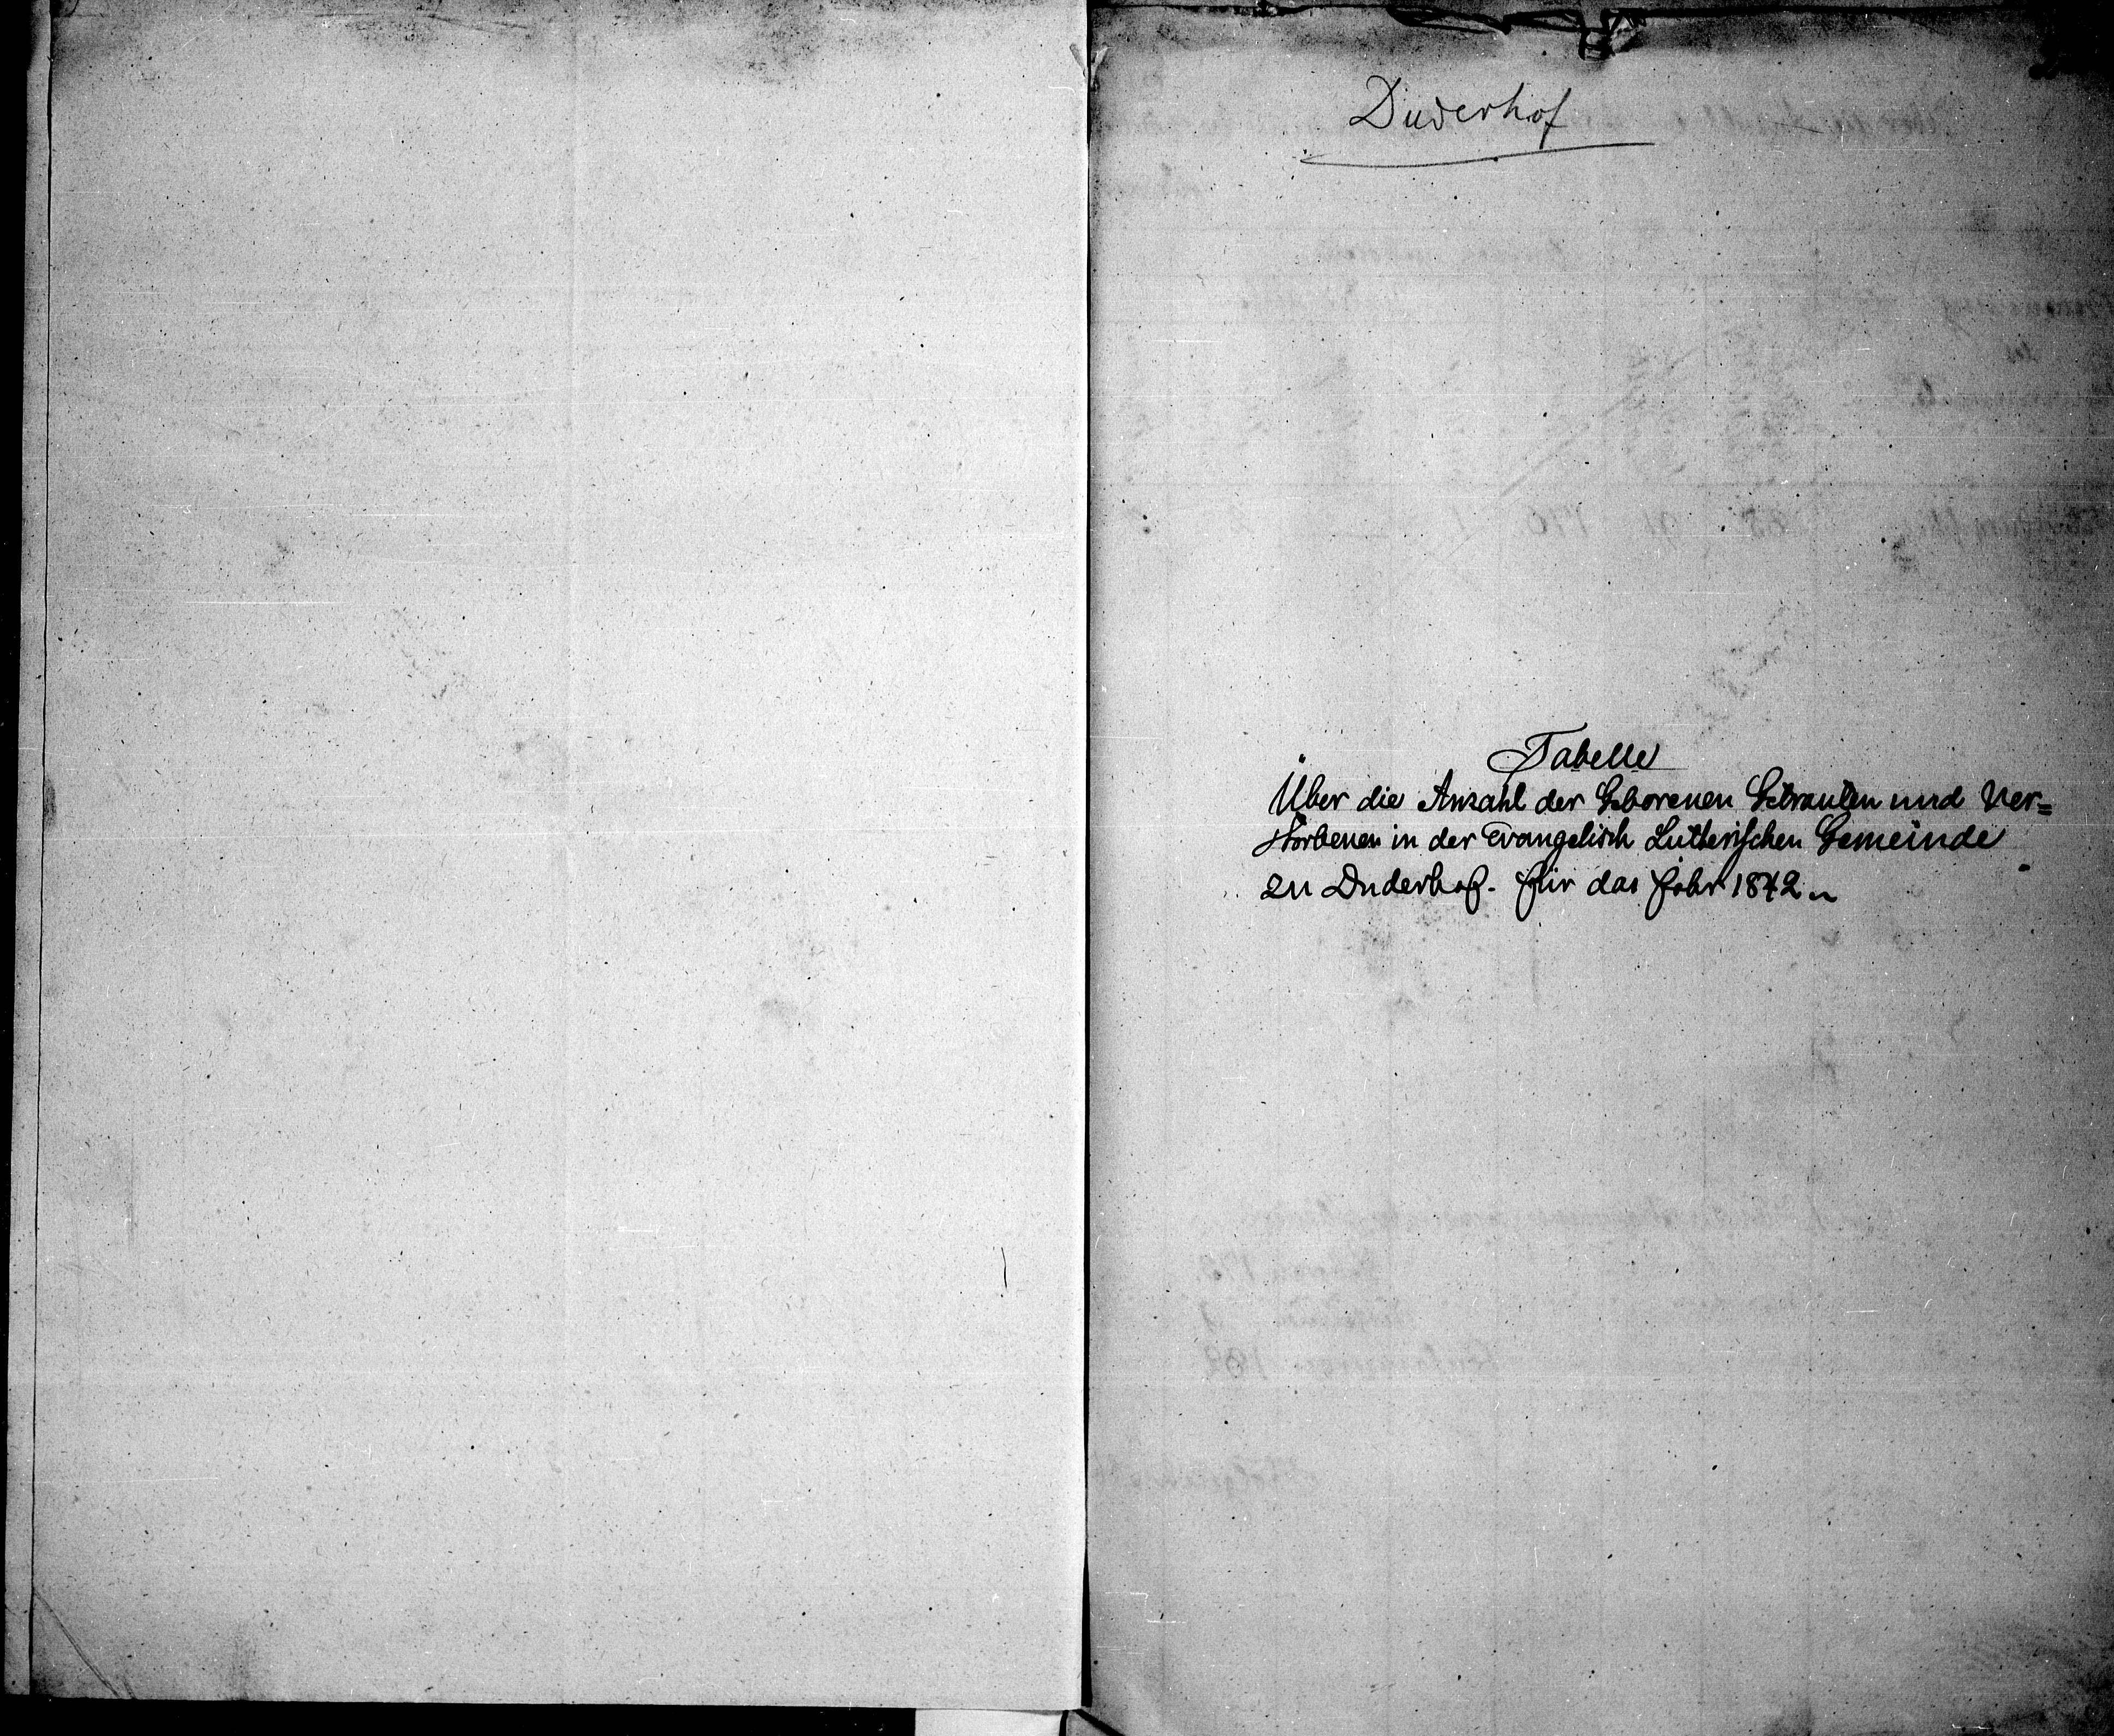 Duderhof
Tabelle
Über die Anzahl der Geborenen Getrauten und Ver=
storbenen in der Evangelisch Lutherischen Gemeinde
zu Duderhof. für das Jahr 1842.